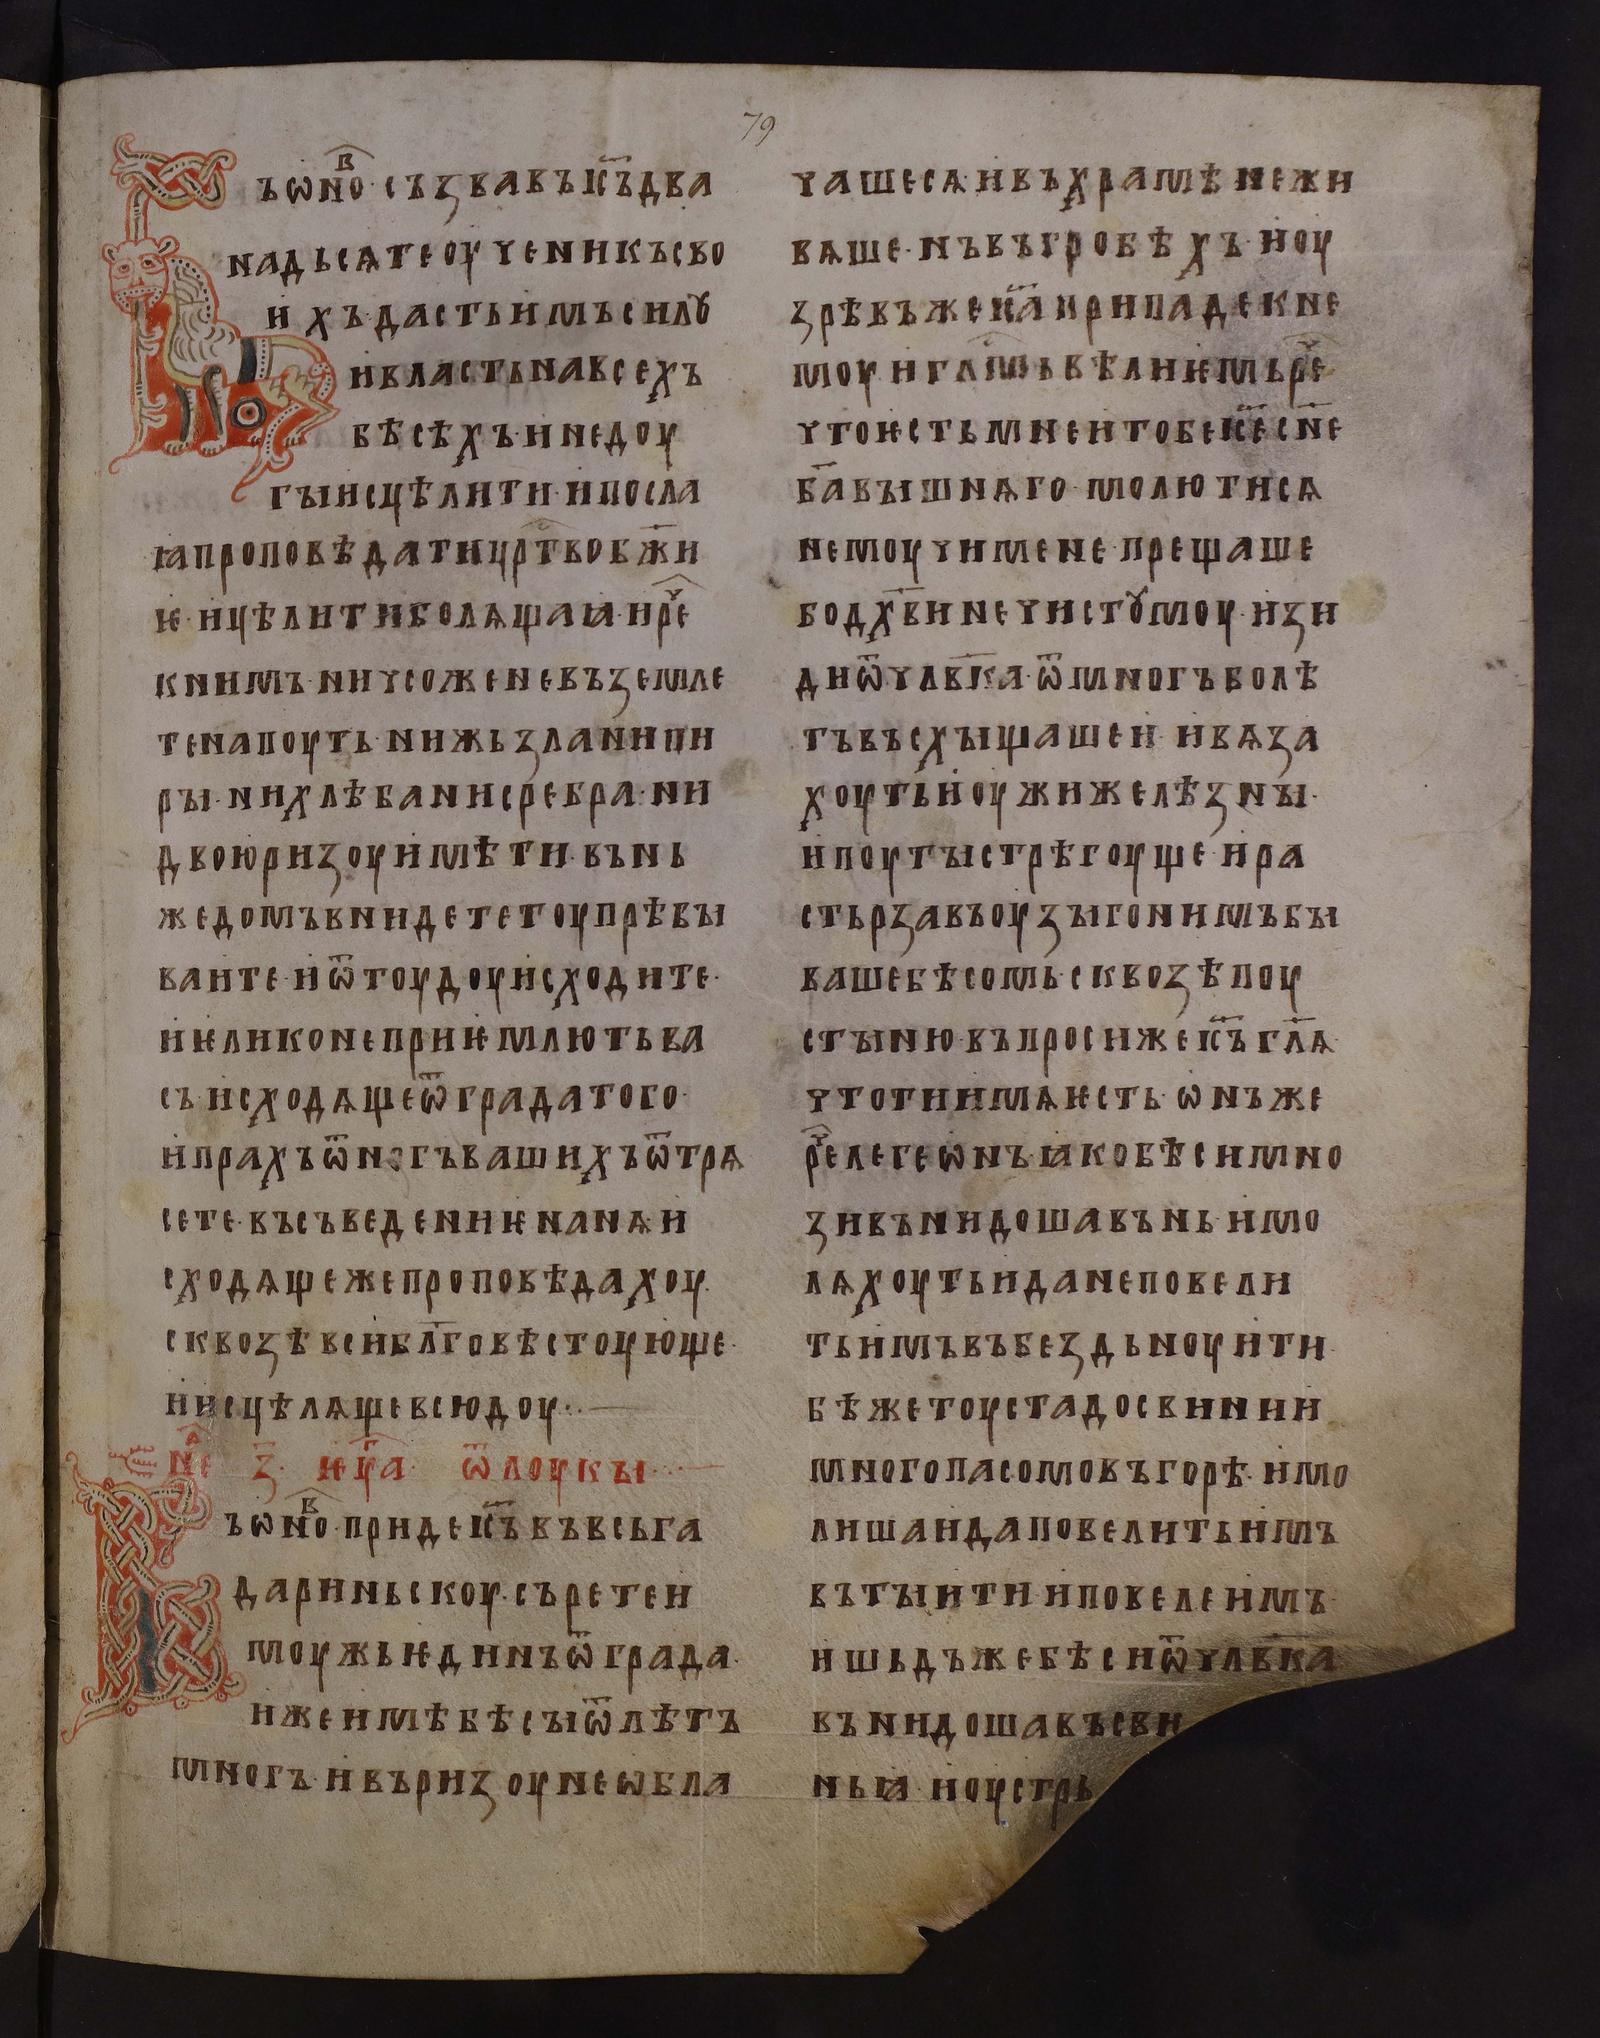 79
Въ ѡно в҇ · съзвавъ і҃съ два
надьсѧте оученикъ сво
ихъ дасть имъ силꙋ
и власть на всехъ
бѣсѣхъ · и недоу
гы исцѣлити · и посла
ꙗ проповѣдати цр҃тво бж҃и
ѥ · и цѣлити болѧщаꙗ · и рⷱ҇е
к нимъ · ничсоже не въземле
те на поуть · ни жьзла ни пи
ры · ни хлѣба ни сребра · ни
двою ризоу имѣти · въ нь
же домъ вниндете тоу прѣбы
ваите · и ѿтоудоу исходите ·
и ѥлико не приѥмлють ва
съ · исходѧще ѿ града того ·
и прахъ ѿ ногъ вашихъ ѿтрѧ
сете · въ съведениѥ на нѧ и
сходѧще же проповѣдахоу ·
сквозѣ вси бл҃говѣстоующе ·
и исцѣлѧще всюдоу ··
нⷣе з҃ · ѥⷡ҇а · ѿ лоукы ··
Въ ѡно в҇ · приде і҃съ въ всь га
дариньскоу · сърете и
моужь ѥдинъ ѿ града ·
иже имѣ бѣсы ѿ лѣтъ
многъ · и въ ризоу не ѡбла
чаше сѧ · и въ храмѣ не жи
вѧше · нъ въ гробѣхъ · и оу
зрѣвъ же і҃са припаде к не
моу и гл҃мь вѣлиѥмь рⷱ҇е
что ѥсть мне и тобе і҃се сн҃е
б҃а вышнѧго · молю ти сѧ
не моучи мене · прещаше
бо дх҃ви нечистꙋмоу · изи
ди ѿ члв҃ка · ѿ многъ бо лѣ
тъ въсхыщаше и · и вѧза
хоуть и оужи желѣзны ·
и поуты стрѣгоуще · и ра
стьрзавъ оузы гонимъ бы
ваше бѣсомь · сквозѣ поу
стыню · въпроси же і҃съ гл҃ѧ
что ти имѧ ѥсть · ѡнъ же
рⷱ҇е легеѡнъ · ꙗко бѣси мно
зи вънидоша въ нь · и мо
лѧхоуть и да не повели
ть имъ въ бездьноу ити ·
бѣ же тоу стадо свинии
много пасомо въ горѣ · и мо
лиша и да повелить имъ
въ ты ити · и повеле имъ ·
ишьдъже бѣси ѿ члв҃ка
вънидоша въ сви
ньꙗ · и оустрь